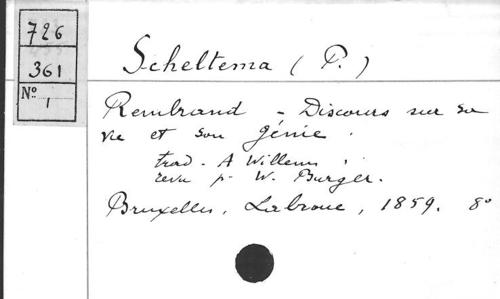 726
361
Nº 1
Scheltema (P.)
Rembrand - Discours sur sa
vie et son génie.
trad. A Willems.
revu p. W. Burger.
Bruxelles, Labroue, 1859. 8º